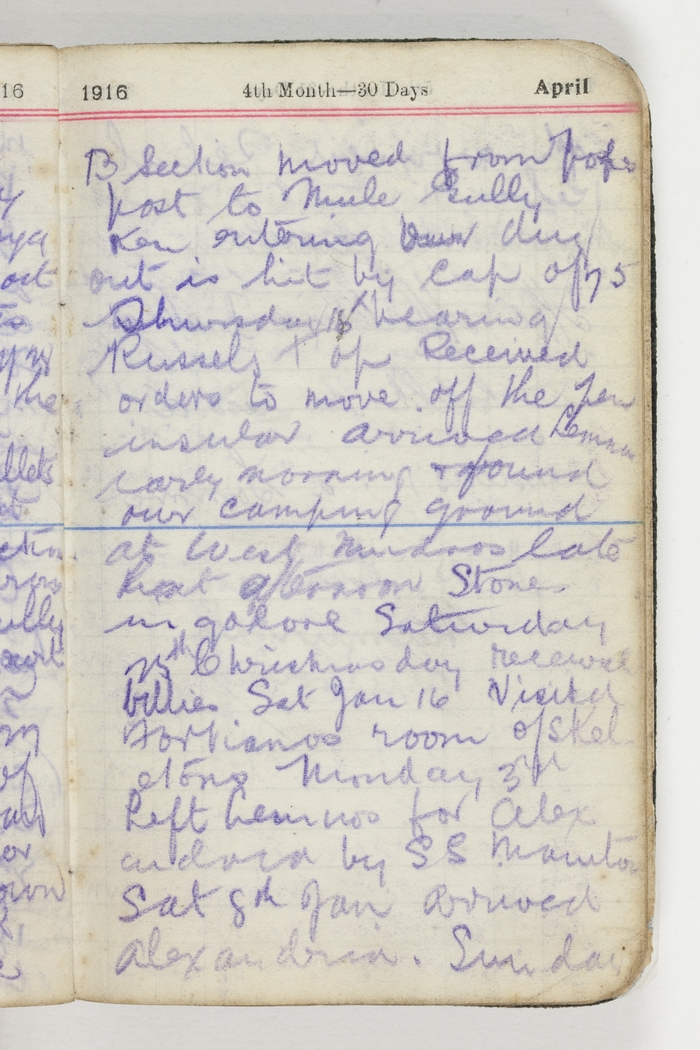 16
1916 4th Month—30 Days April
B Section moved from Popes
post to Mule Gully
Ken entering dug
out is hit by cap of 75
Thursday 16 hearing
Russels + of Received
orders to move off the pen
insular arrived Lemnos
early morning + found
our camping ground
at West Mudros late
that afternoon Stone
in galore Saturday
25th Christmasday received
billies Sat Jan 16 Visited
room of Skel
etons Monday 3rd
Left Lemnos for Alex
andria by SS Manitou
Sat 8th Jan arrived
Alexandria. Sunday